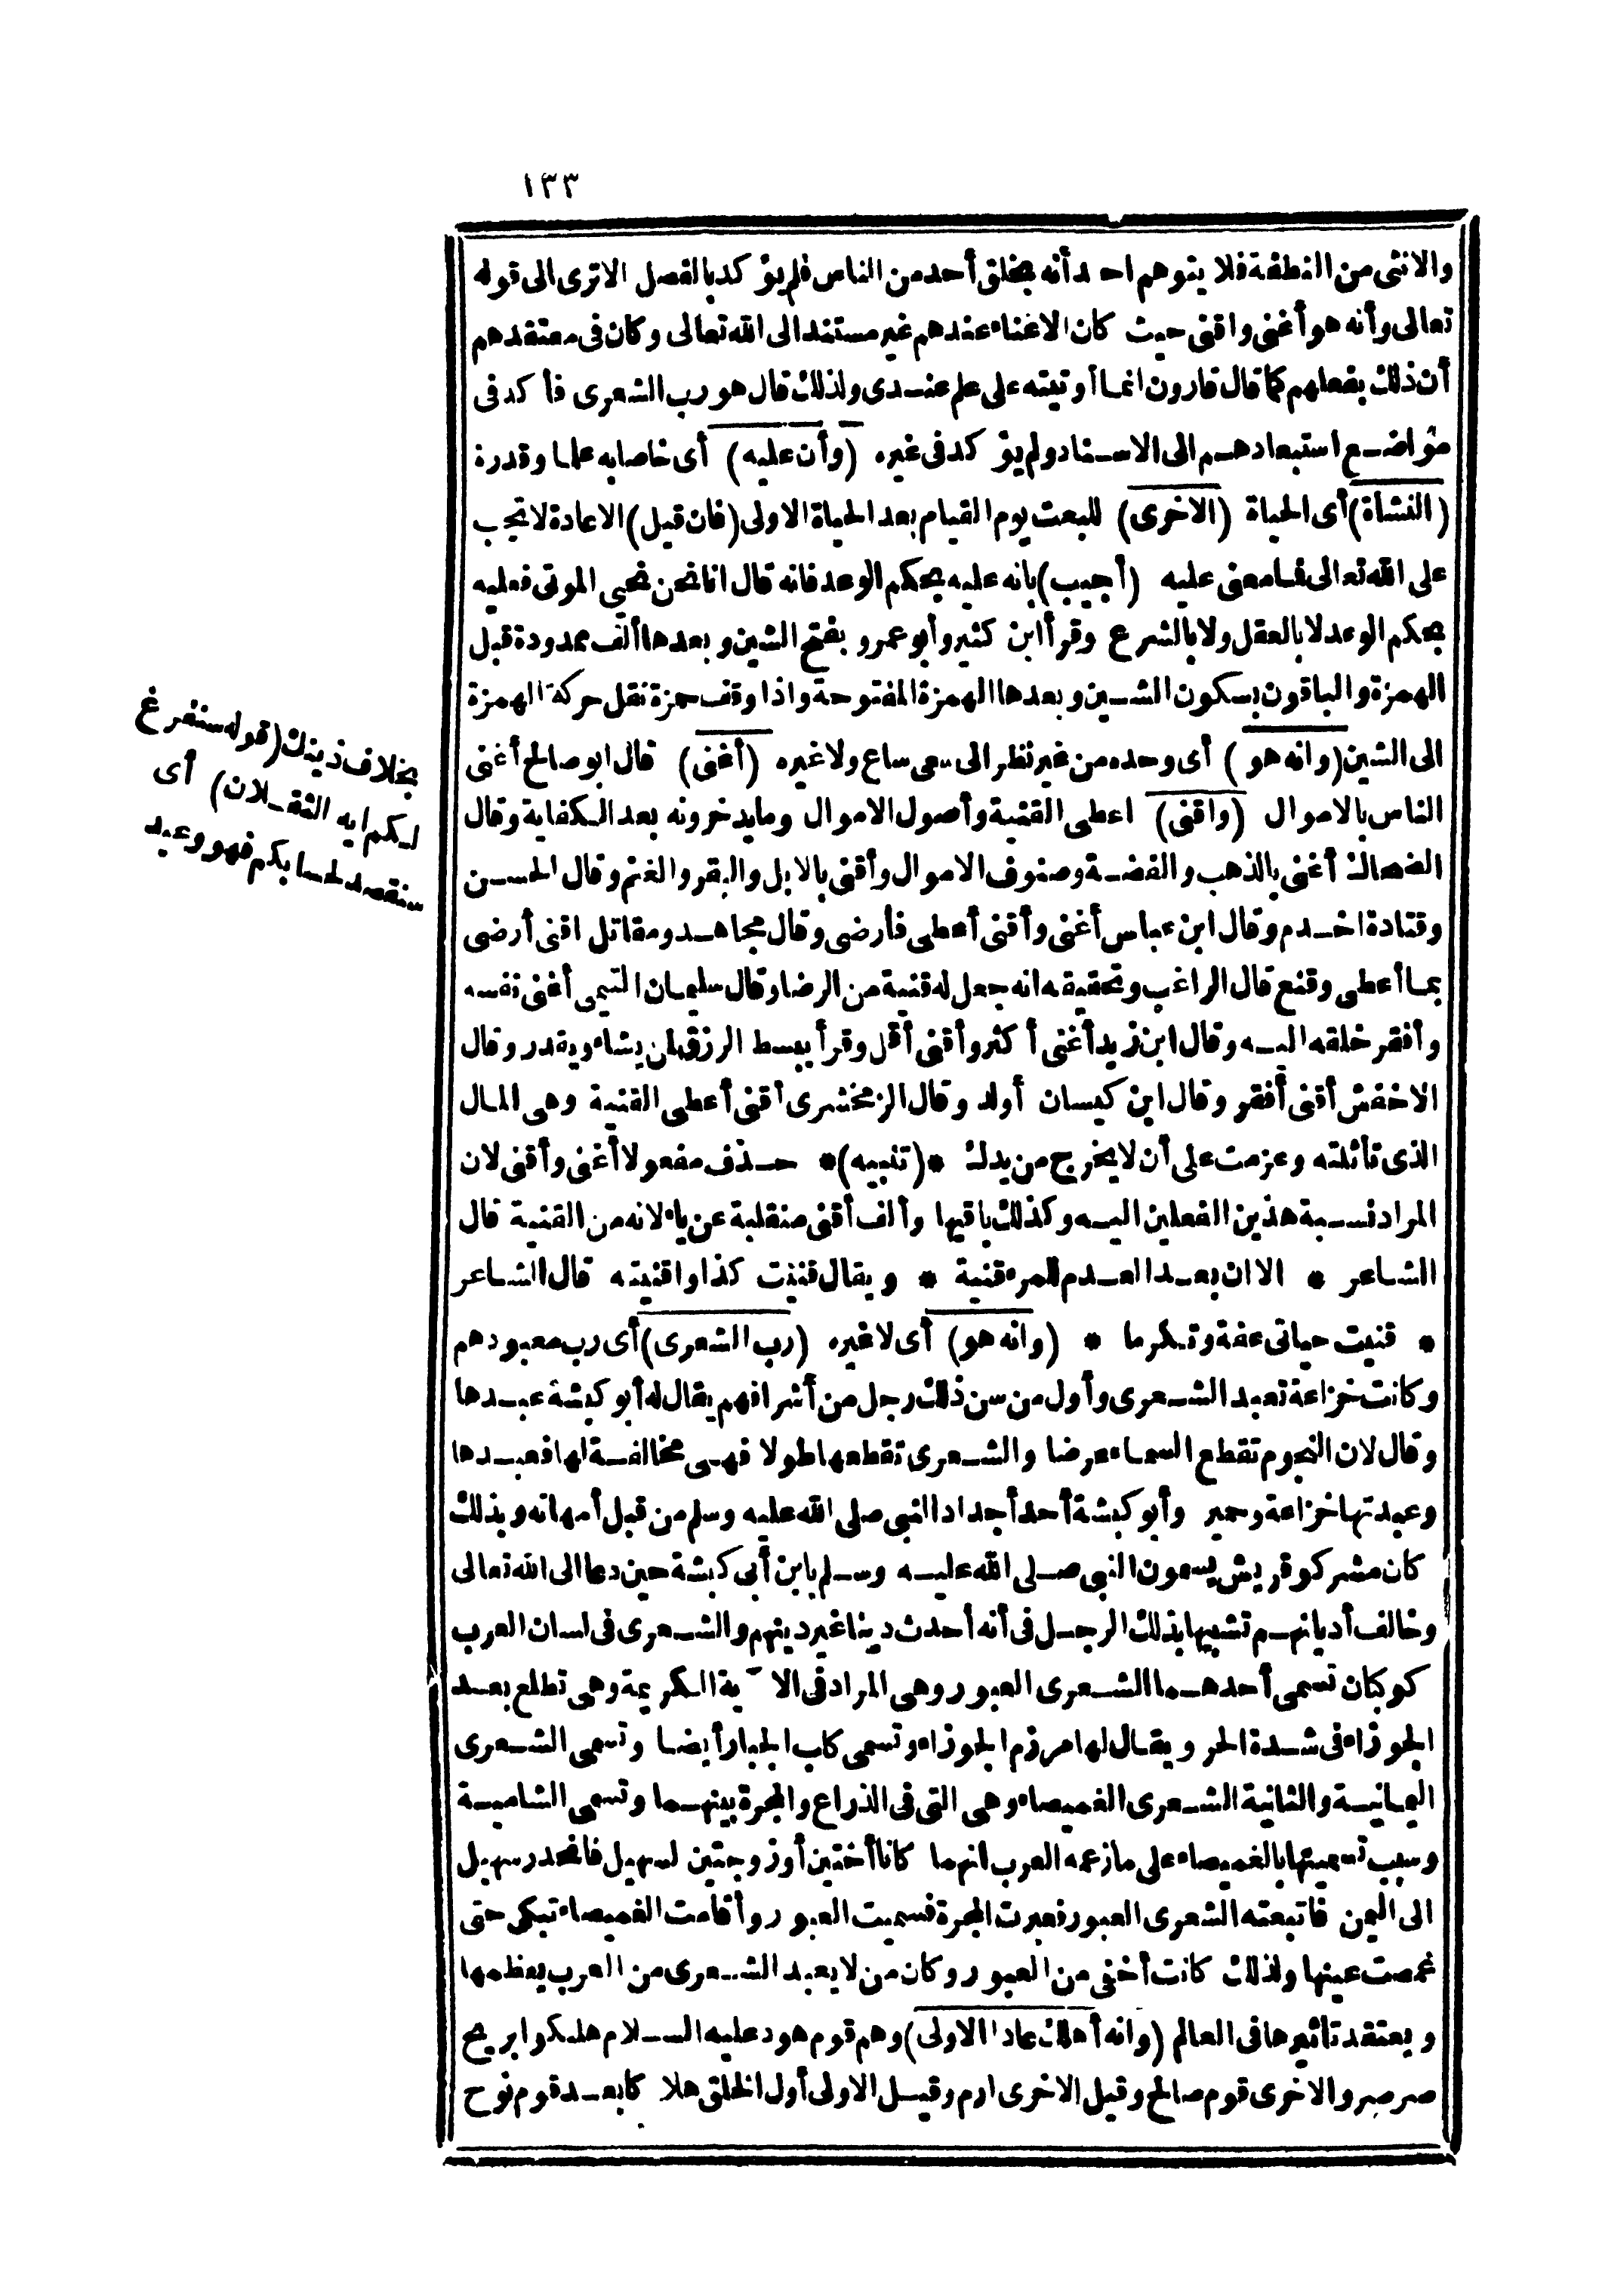 ١٣٣
والانثى من النطفة فلا يتوهم احد أنه بخلق أحد من الناس فلم يؤكد بالفصل الاترى الى قوله
تعالى وأنه هو أغنى واقنى حيث كان الاغناء عندهم غير مستند الى الله تعالى وكان فى معتقدهم
أن ذلك بفعلهم كما قال قارون انما أوتيته على علم عندى ولذلك قال هو رب الشعرى فأكد فى
مواضع استبعادهم الى الاسناد ولم يؤكد فى غيره (وأن عليه) أى خاصا به علما وقدرة
(النشأة) أى الحياة (الاخرى) للبعث يوم القيام بعد الحياة الاولى (فان قيل) الاعادة لا تجب
على الله تعالى فما معنى عليه (أجيب) بانه عليه بحكم الوعد فانه قال انا نحن نحيى الموتى فعليه
بحكم الوعد لا بالعقل ولا بالشرع وقرأ ابن كثير وأبو عمرو بفتح الشين وبعدها ألف ممدودة قبل
الهمزة والباقون بسكون الشين وبعدها الهمزة المفتوحة واذا وقف حمزة نقل حركة الهمزة
الى الشين (وانه هو) أى وحده من غير نظر الى سعى ساع ولا غيره (أغنى) قال ابو صالح أغنى
الناس بالاموال (واقنى) اعطى القنية وأصول الاموال وما يدخرونه بعد الكفاية وقال
الضحاك أغنى بالذهب والفضة وصنوف الاموال وأقنى بالابل والبقر والغنم وقال الحسن
وقتادة اخدم وقال ابن عباس أغنى وأقنى أعطى فأرضى وقال مجاهد ومقاتل اقنى أرضى
بما أعطى وقنع قال الراغب وتحقيقه انه جعل له قنية من الرضا وقال سليمان التيمى أغنى نفسه
وأفقر خلقه اليه وقال ابن زيد أغنى أكثر وأقنى أقل وقرأ يبسط الرزق لمن يشاء ويقدر وقال
الاخفش أقنى أفقر وقال ابن كيسان أولد وقال الزمخشرى أقنى أعطى القنية وهى المال
الذى تأثلته وعزمت على أن لا يخرج من يدك *(تنبيه)* حذف مفعولا أغنى وأقنى لان
المراد نسبة هذين الفعلين اليه وكذلك باقيها وألف أقنى منقلبة عن ياء لانه من القنية قال
الشاعر * الا ان بعد العدم للمرء قنية * ويقال قنيت كذا واقنيته قال الشاعر
* قنيت حياتى عفة وتكرما * (وانه هو) أى لا غيره (رب الشعرى) أى رب معبودهم
وكانت خزاعة تعبد الشعرى وأول من سن ذلك رجل من أشرافهم يقال له أبو كبشة عبدها
وقال لان النجوم تقطع السماء عرضا والشعرى تقطعها طولا فهى مخالفة لها فعبدها
وعبدتها خزاعة وحمير وأبو كبشة أحد أجداد النبى صلى الله عليه وسلم من قبل أمهاته وبذلك
كان مشركو قريش يسمون النبى صلى الله عليه وسلم بابن أبى كبشة حين دعا الى الله تعالى
وخالف أديانهم تشبيها بذلك الرجل فى أنه أحدث دينا غير دينهم والشعرى فى لسان العرب
كوكبان تسمى أحدهما الشعرى العبور وهى المراد فى الآية الكريمة وهى تطلع بعد
الجوزاء فى شدة الحر ويقال لها مرزم الجوزاء وتسمى كلب الجبار أيضا وتسمى الشعرى
اليمانية والثانية الشعرى الغميصاء وهى التى فى الذراع والمجرة بينهما وتسمى الشامية
وسبب تسميتها بالغميصاء على ما زعمه العرب انهما كانا أختين أو زوجتين لسهيل فانحدر سهيل
الى اليمن فاتبعته الشعرى العبور فعبرت المجرة فسميت العبور وأقامت الغميصاء تبكى حتى
غمصت عينها ولذلك كانت أخفى من العبور وكان من لا يعبد الشعرى من العرب يعظمها
ويعتقد تأثيرها فى العالم (وانه أهلك عادا الاولى) وهم قوم هود عليه السلام هلكوا بريح
صرصر والاخرى قوم صالح وقيل الاخرى ارم وقيل الاولى أول الخلق هلاكا بعد قوم نوح
بخلاف ذينك (قوله سنفرغ
لكم ايه الثقلان) أى
سنقصد لحسابكم فهو وعيد